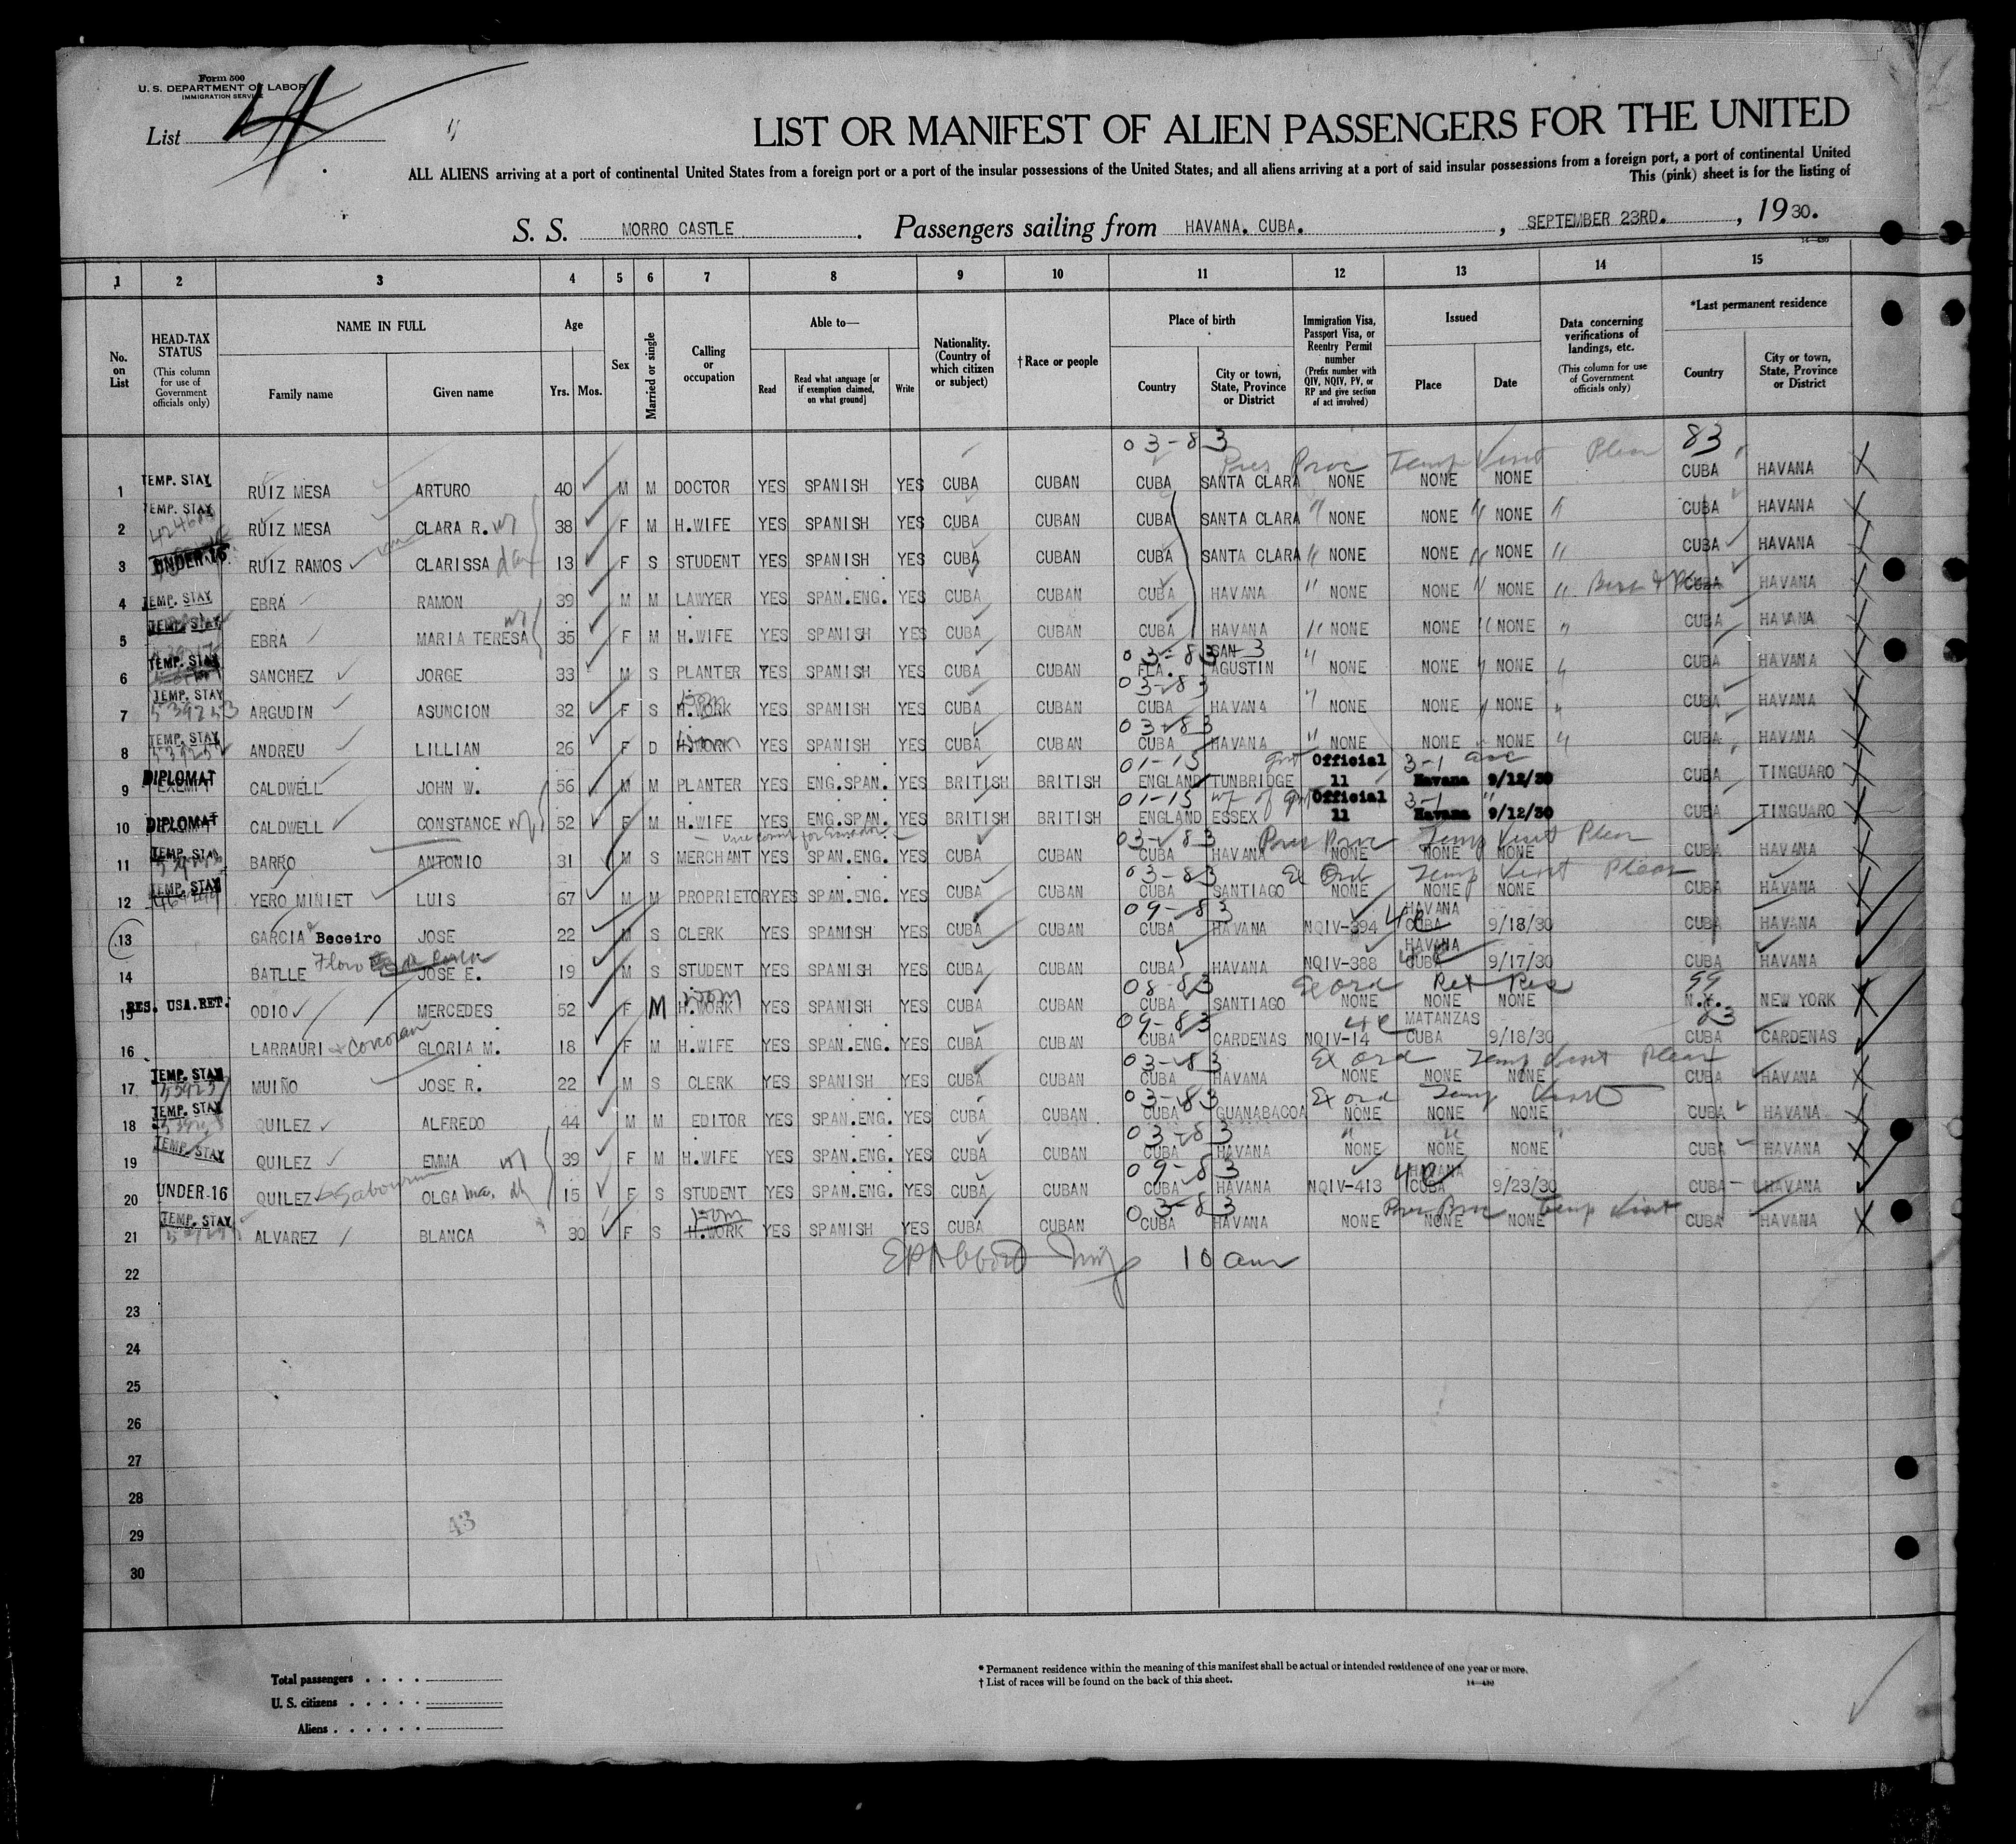 Form 500
U. S. DEPARTMENT OF LABOR
IMMIGRATION SERVICE
List 4
LIST OR MANIFEST OF ALIEN PASSENGERS FOR THE UNITED
ALL ALIENS arriving at a port of continental United States from a foreign port or a port of the insular possessions of the United States, and all aliens arriving at a port of said insular possessions from a foreign port, a port of continental United
This (pink) sheet is for the listing of
S. S. MORRO CASTLE. Passengers sailing from HAVANA. CUBA., SEPTEMBER 23RD., 1930.
14—430
1 2 3 4 5 6 7 8 9 10 11 12 13 14 15
No. on List
HEAD-TAX STATUS (This column for use of Government officials only)
NAME IN FULL
Family name
Given name
Age
Yrs. Mos.
Sex
Married or single
Calling or occupation
Able to—
Read
Read what language [or if exemption claimed, on what ground]
Write
Nationality. (Country of which citizen or subject)
† Race or people
Place of birth
Country
City or town, State, Province or District
Immigration Visa, Passport Visa, or Reentry Permit number (Prefix number with QIV, NQIV, PV, or RP and give section of act involved)
Issued
Place
Date
Data concerning verifications of landings, etc. (This column for use of Government officials only)
*Last permanent residence
Country
City or town, State, Province or District
03-83 83
Pres Proc Temp Visit Pleas
1 TEMP. STAY RUIZ MESA ARTURO 40 M M DOCTOR YES SPANISH YES CUBA CUBAN CUBA SANTA CLARA NONE NONE NONE CUBA HAVANA
2 TEMP. STAY RUIZ MESA CLARA R. wf 38 F M H.WIFE YES SPANISH YES CUBA CUBAN CUBA SANTA CLARA " NONE NONE " NONE " CUBA HAVANA
3 UNDER 16 RUIZ RAMOS CLARISSA dau 13 F S STUDENT YES SPANISH YES CUBA CUBAN CUBA SANTA CLARA " NONE NONE " NONE " CUBA HAVANA
4 TEMP. STAY EBRA RAMON 39 M M LAWYER YES SPAN.ENG. YES CUBA CUBAN CUBA HAVANA " NONE NONE " NONE " CUBA HAVANA
5 TEMP. STAY EBRA MARIA TERESA wf 35 F M H.WIFE YES SPANISH YES CUBA CUBAN CUBA HAVANA " NONE NONE " NONE " CUBA HAVANA
03-83 SAN
6 TEMP. STAY SANCHEZ JORGE 33 M S PLANTER YES SPANISH YES CUBA CUBAN FLA. AGUSTIN " NONE NONE " NONE " CUBA HAVANA
03-83
7 TEMP. STAY 539253 ARGUDIN ASUNCION 32 F S H.WORK YES SPANISH YES CUBA CUBAN CUBA HAVANA " NONE NONE " NONE " CUBA HAVANA
03-83
8 TEMP. STAY ANDREU LILLIAN 26 F D H.WORK YES SPANISH YES CUBA CUBAN CUBA HAVANA " NONE NONE " NONE " CUBA HAVANA
01-15 Official 3-1
9 DIPLOMAT CALDWELL JOHN W. 56 M M PLANTER YES ENG.SPAN. YES BRITISH BRITISH ENGLAND TUNBRIDGE 11 Havana 9/12/30 CUBA TINGUARO
01-15 wf of Official 3-1 "
10 DIPLOMAT CALDWELL CONSTANCE wf 52 F M H.WIFE YES ENG.SPAN. YES BRITISH BRITISH ENGLAND ESSEX 11 Havana 9/12/30 CUBA TINGUARO
03-83 Pres Proc Temp Visit Pleas
11 TEMP. STAY BARRO ANTONIO 31 M S MERCHANT YES SPAN.ENG. YES CUBA CUBAN CUBA HAVANA NONE NONE NONE CUBA HAVANA
03-83 Ex Ord Temp Visit Pleas
12 TEMP. STAY YERO MINIET LUIS 67 M M PROPRIETOR YES SPAN.ENG. YES CUBA CUBAN CUBA SANTIAGO NONE NONE NONE CUBA HAVANA
09-83 4e HAVANA
13 GARCIA Beceiro JOSE 22 M S CLERK YES SPANISH YES CUBA CUBAN CUBA HAVANA NQIV-394 CUBA 9/18/30 CUBA HAVANA
4e HAVANA
14 BATLLE JOSE E. 19 M S STUDENT YES SPANISH YES CUBA CUBAN CUBA HAVANA NQIV-388 CUBA 9/17/30 CUBA HAVANA
08-83 Ex ord Ret Res 99
15 RES. USA. RET. ODIO MERCEDES 52 F M H.WORK YES SPANISH YES CUBA CUBAN CUBA SANTIAGO NONE NONE NONE N.Y. NEW YORK
09-83 4e MATANZAS 83
16 LARRAURI Corcoran GLORIA M. 18 F M H.WIFE YES SPAN.ENG. YES CUBA CUBAN CUBA CARDENAS NQIV-14 CUBA 9/18/30 CUBA CARDENAS
03-83 Ex Ord Temp Visit Pleas
17 TEMP. STAY MUIÑO JOSE R. 22 M S CLERK YES SPANISH YES CUBA CUBAN CUBA HAVANA NONE NONE NONE CUBA HAVANA
03-83 Ex ord Temp Visit
18 TEMP. STAY QUILEZ ALFREDO 44 M M EDITOR YES SPAN.ENG. YES CUBA CUBAN CUBA GUANABACOA NONE NONE NONE CUBA HAVANA
03-83 " " "
19 TEMP. STAY QUILEZ EMMA wf 39 F M H.WIFE YES SPAN.ENG. YES CUBA CUBAN CUBA HAVANA NONE NONE NONE CUBA HAVANA
09-83 4e HAVANA
20 UNDER 16 QUILEZ OLGA 15 F S STUDENT YES SPAN.ENG. YES CUBA CUBAN CUBA HAVANA NQIV-413 CUBA 9/23/30 CUBA HAVANA
03-83 Pres Proc Temp Visit
21 TEMP. STAY ALVAREZ BLANCA 30 F S H.WORK YES SPANISH YES CUBA CUBAN CUBA HAVANA NONE NONE NONE CUBA HAVANA
10 am
22
23
24
25
26
27
28
29
43
30
Total passengers
U. S. citizens
Aliens
* Permanent residence within the meaning of this manifest shall be actual or intended residence of one year or more.
† List of races will be found on the back of this sheet.
14—430